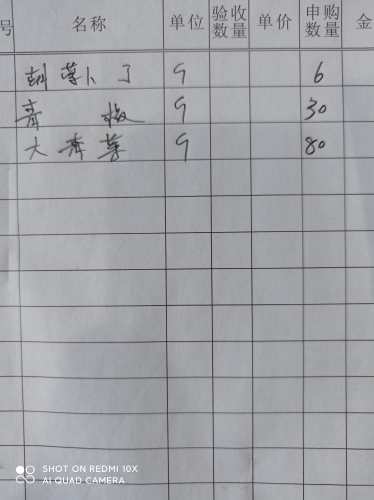 号 名称 单位 验收数量 单价 申购数量 金
胡萝卜丁 斤 6
青椒 斤 30
大青菜 斤 80
SHOT ON REDMI 10X
AI QUAD CAMERA